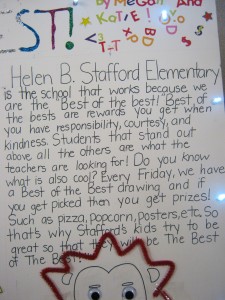 by Megan And
Katie!
ST!
T-T
Helen B. Stafford Elementary
is the school that works because we
are the "Best of the best!" Best of
the bests are rewards you get when
you have responsibility, courtesy, and
kindness. Students that stand out
above all the others are what the
teachers are looking for! Do you know
what is also cool? Every Friday, we have
a best of the Best drawing and if
you get picked then you get prizes!
Such as pizza, popcorn, posters, etc. So
that's why Stafford's kids try to be
great so that they will be The Best
of The Best!